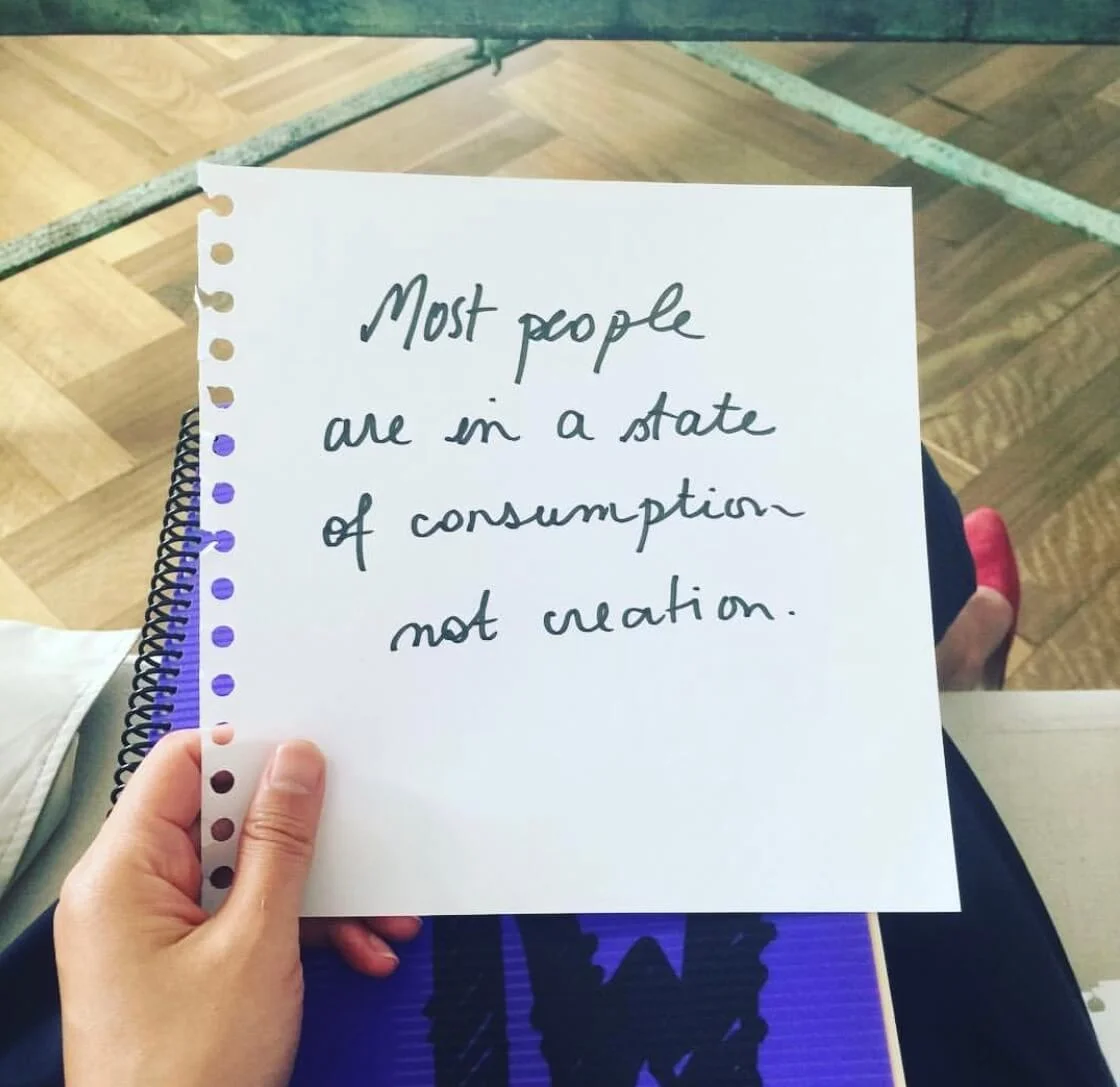 Most people
are in a state
of consumption
not creation.